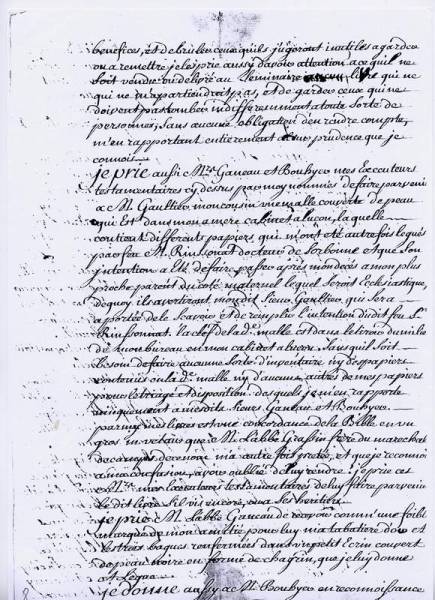 benefices, et de bruler ceux quils jugeront inutiles a garder
ou a remettre je les prie aussy davoir attention a ce quil ne
soit vendu ou delivré au Seminaire aucun livre qui ne
qui ne m'appartiendroit pas, et de garder ceux qui ne
doivent pas tomber indifferemment a toute sorte de
personnes, sans aucune obligation den rendre compte,
m'en rapportant entierement a leur prudence que je
connois.
je prie aussi Mrs. Ganeau et Bouhyer mes Executeurs
testamentaires cy dessus par moy nommés de faire parvenir
a M. Gaultier mon cousin une malle couverte de peau
qui Est dans mon arriere cabinet a luçon, laquelle
contient differents papiers qui m'ont eté autrefois legués
par feu M. Rinssonat docteur de Sorbonne et que Son
intention a Eté de faire passer après mon decés a mon plus
proche parent du coté maternel lequel Seroit Ecclesiastique,
dequoy ils avertiront mondit Sieur Gaultier qui Sera
a portée de le Scavoir et de remplir l'intention dudit feu Sr.
Rinssonnat. la clef de la de. malle est dans le tiroir du milieu
de mon bureau en mon cabinet a lucon. Sans quil Soit
besoin de faire aucune Sorte d'inventaire ny des papiers
contenus en la de. malle ny d'aucuns autres de mes papiers
pour le triage et disposition desquels je m'en rapporte
uniquement a mesdits Sieurs Ganeau et Bouhyer.
parmy mes livres est une concordance de la Bible en un
gros in-
que M. Labbé Grassin frere du marechal
de camp
m'a autrefois pretée, et que je reconnois
a ma confusion, avoir oublié de luy rendre. je prie ces
Mrs. mes Executeurs testamentaires de luy faire parvenir
le dit livre Sil vit encore, ou a Ses heritiers.
je prie M. Labbé Ganeau de recevoir comme une foible
marque de mon amitié pour luy ma tabatiere d'or et
les trois bagues renfermées dans un petit Ecrin couvert
de peau noire en forme de chagrin, que je luy donne
et Legue.
je donne aussy a M. Bouhyer en reconnoissance